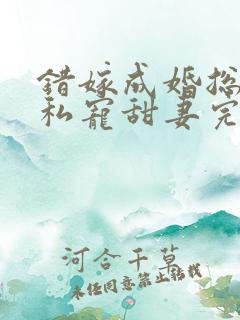 错嫁成婚总
私宠甜妻完
河合千草
未经同意禁止转载